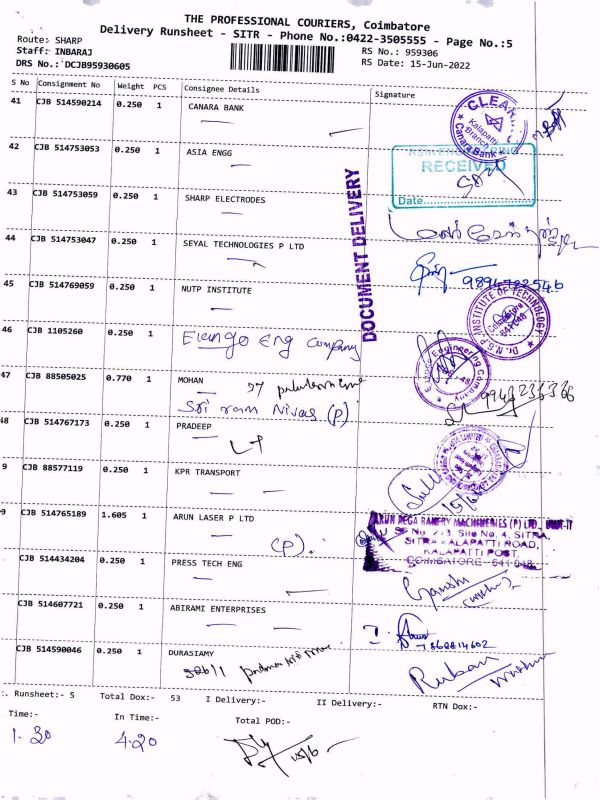 THE PROFESSIONAL COURIERS, Coimbatore
Delivery Runsheet - SITR - Phone No.:0422-3505555 - Page No.:5
Route: SHARP
Staff: INBARAJ
DRS No.: DCJB95930605
RS No.: 959306
RS Date: 15-Jun-2022
S No Consignment No Weight PCS Consignee Details Signature
41 CJB 514590214 0.250 1 CANARA BANK
CLEAR
Kalapatti Branch
Canara Bank
42 CJB 514753053 0.250 1 ASIA ENGG
RECEIVED
Date
43 CJB 514753059 0.250 1 SHARP ELECTRODES
DOCUMENT DELIVERY
44 CJB 514753047 0.250 1 SEYAL TECHNOLOGIES P LTD
9894782546
45 CJB 514769059 0.250 1 NUTP INSTITUTE
Dr. N.G.P INSTITUTE OF TECHNOLOGY
46 CJB 1105260 0.250 1 Evango Eng Company
Engineering Company
47 CJB 88505025 0.770 1 MOHAN
Sri ram Nivas (P)
48 CJB 514767173 0.250 1 PRADEEP
9 CJB 88577119 0.250 1 KPR TRANSPORT
9 CJB 514765189 1.605 1 ARUN LASER P LTD
(P).
ARUN MEGA BAKERY MACHINERIES (P) LTD., UNIT-II
SF No 213 Site No. 4, SITRA,
SITRA KALAPATTI ROAD,
KALAPATTI POST,
COIMBATORE - 641 048
CJB 514434204 0.250 1 PRESS TECH ENG
CJB 514607721 0.250 1 ABIRAMI ENTERPRISES
CJB 514590046 0.250 1 DURASIAMY
Ruban
:. Runsheet:- 5 Total Dox:- 53 I Delivery:- II Delivery:- RTN Dox:-
Time:- In Time:- Total POD:-
1.30 4.20 15/6